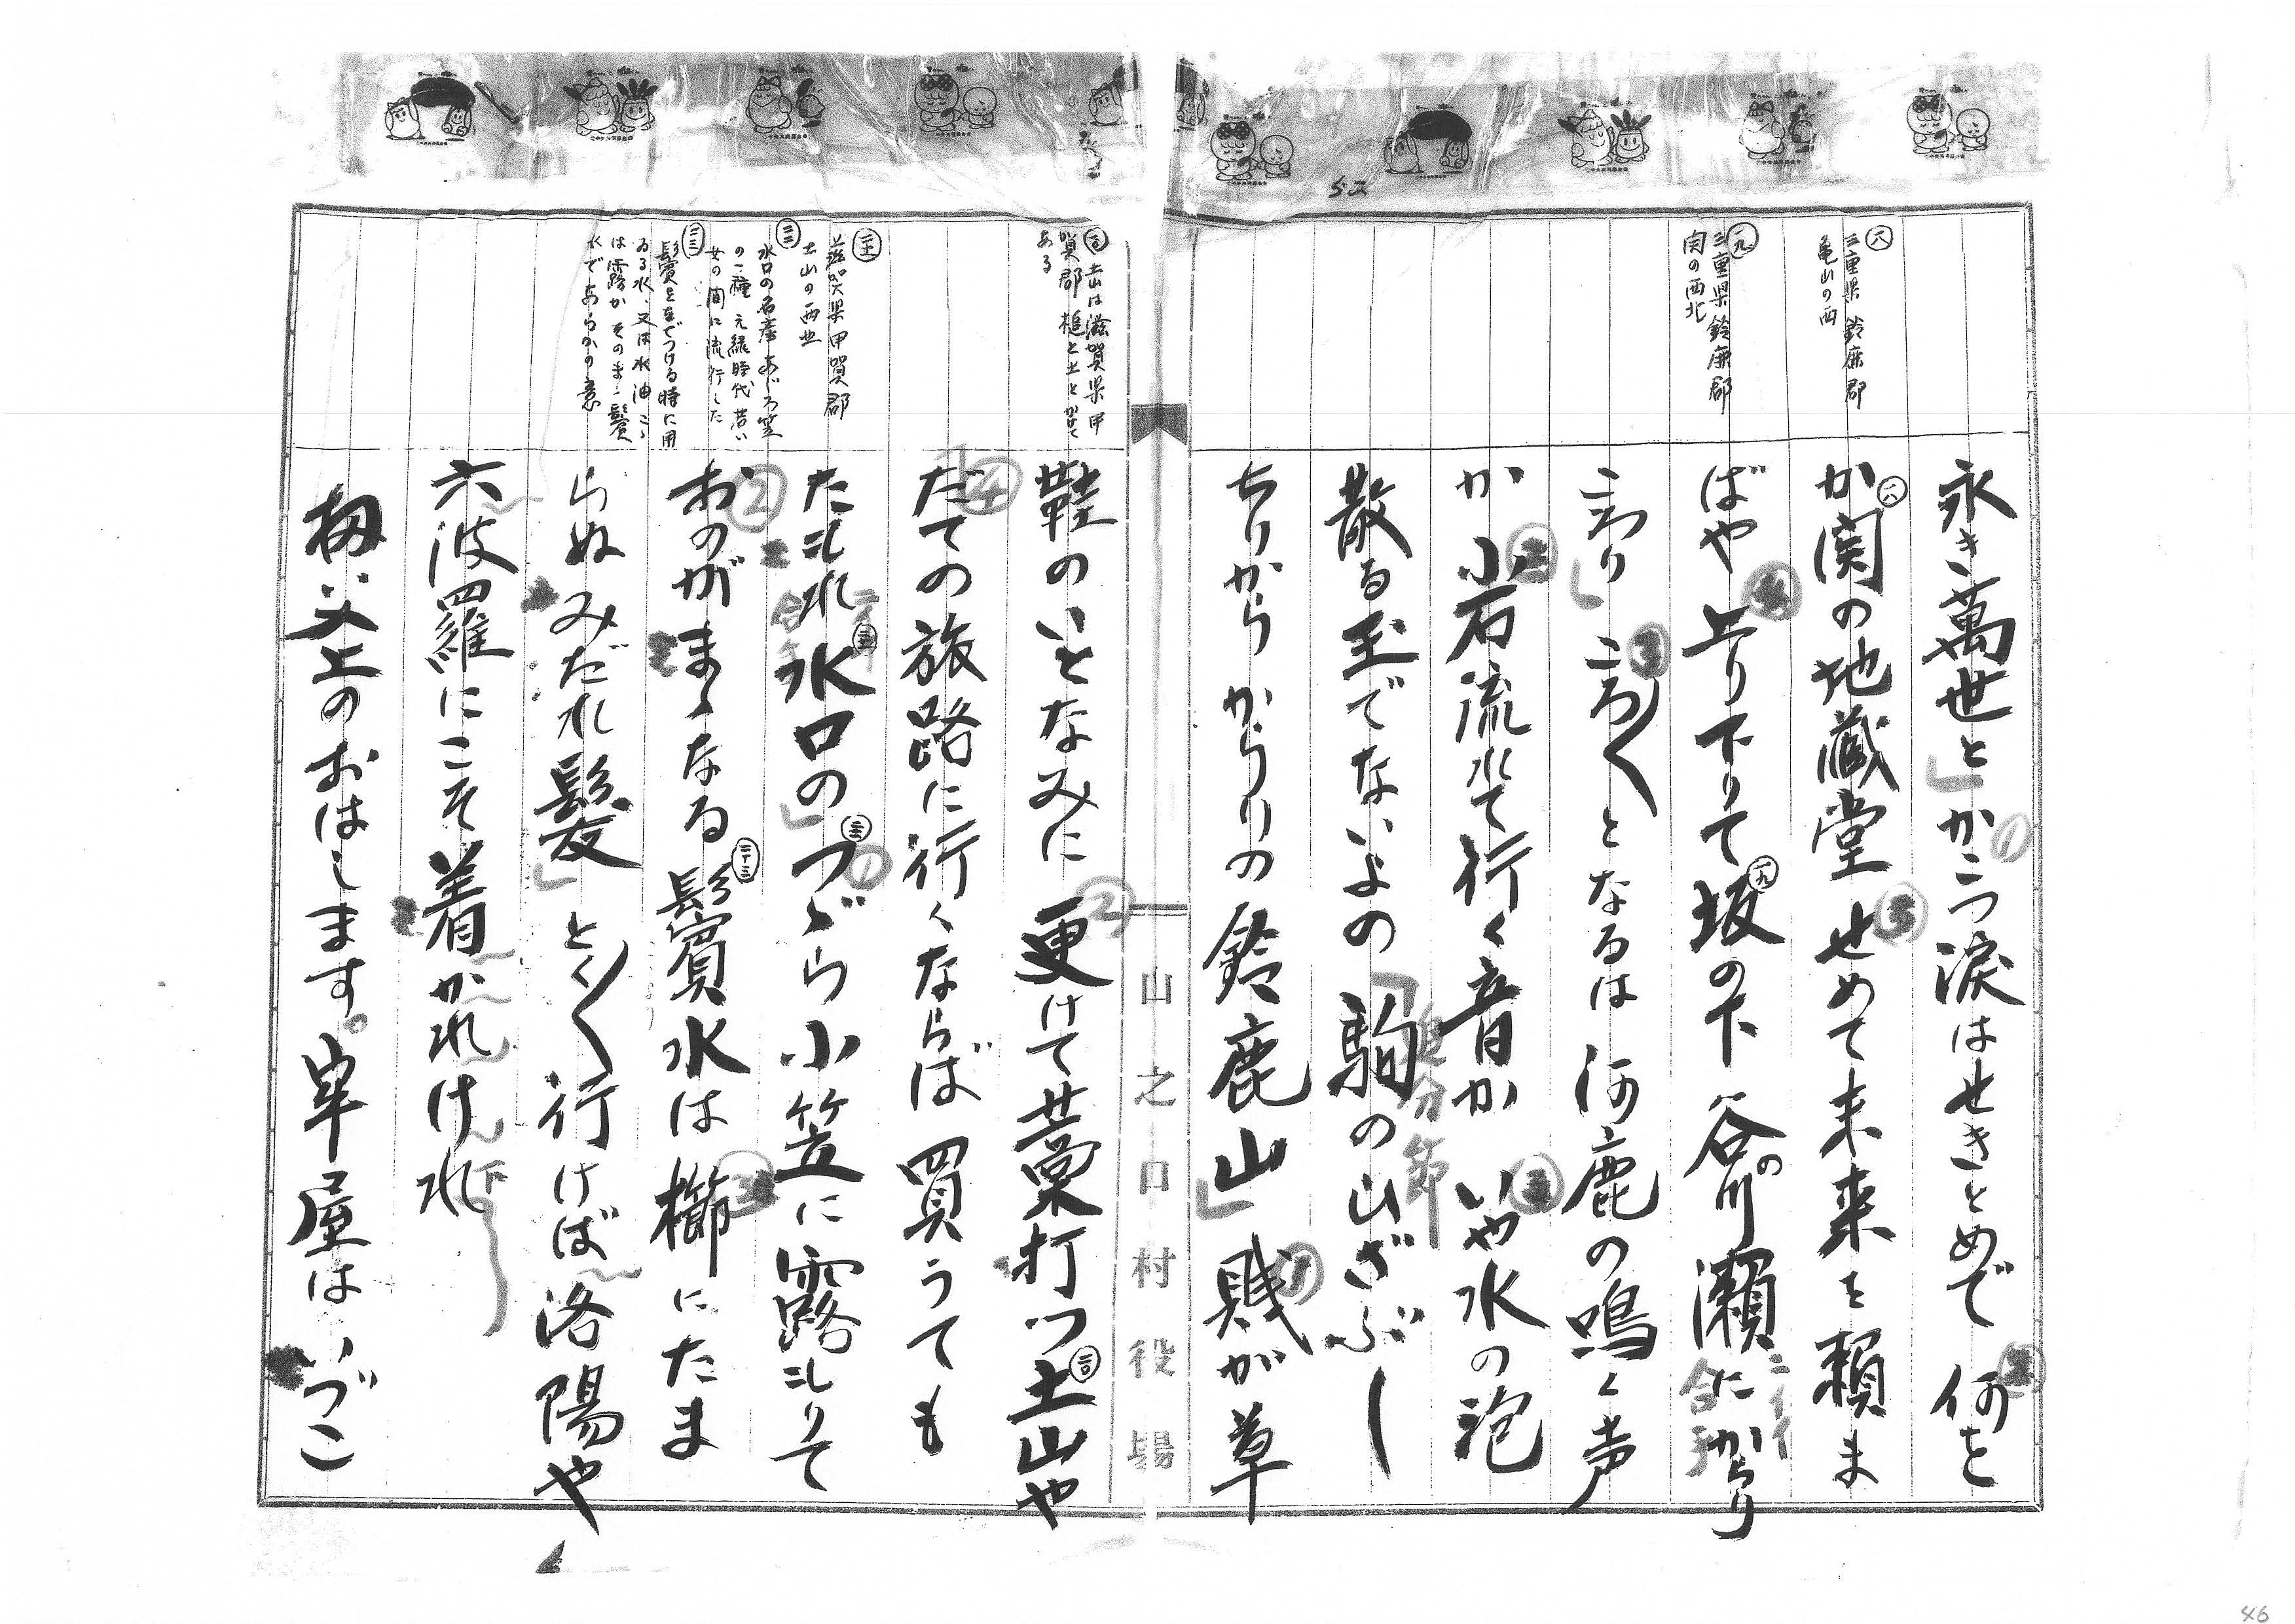 52
㊇三重県 鈴鹿郡
亀山の西
㊈三重県 鈴鹿郡
関の西北
永き萬世と」かこつ涙はせきとめで 何を
か関の地蔵堂 せめて未来を頼ま
ばや 上り下りて坂の下 谷の川瀬にからり
こわり」ころ〱となるは河鹿の鳴く声
か 小石流れて行く音か いや水の泡
散る玉でないよの「駒の山ざぶし
ちりから からりの鈴鹿山」賤が草
追分節
合手
山之口村役場
土山は滋賀県甲
賀郡 槌と土とかけて
ある
滋賀県甲賀郡
土山の西北
水口の名産 あじろ笠
の一種 元緑時代 若い
女の間に流行した
鬢をなでつける時に用
ゐる水、又は水油 こゝ
は露がそのまゝ鬢
水であらふの意
鞋のいとなみに 更けて藁打つ土山や
だての旅路に行くならば 買うても
たまれ水口の」つゞら小笠に露しりて
おのがまゝなる鬢水は 櫛にたま
らぬみだれ髪」とく〱行けば洛陽や
六波羅にこそ着かれけれ
扨父上のおはします。牢屋はいづこ
46